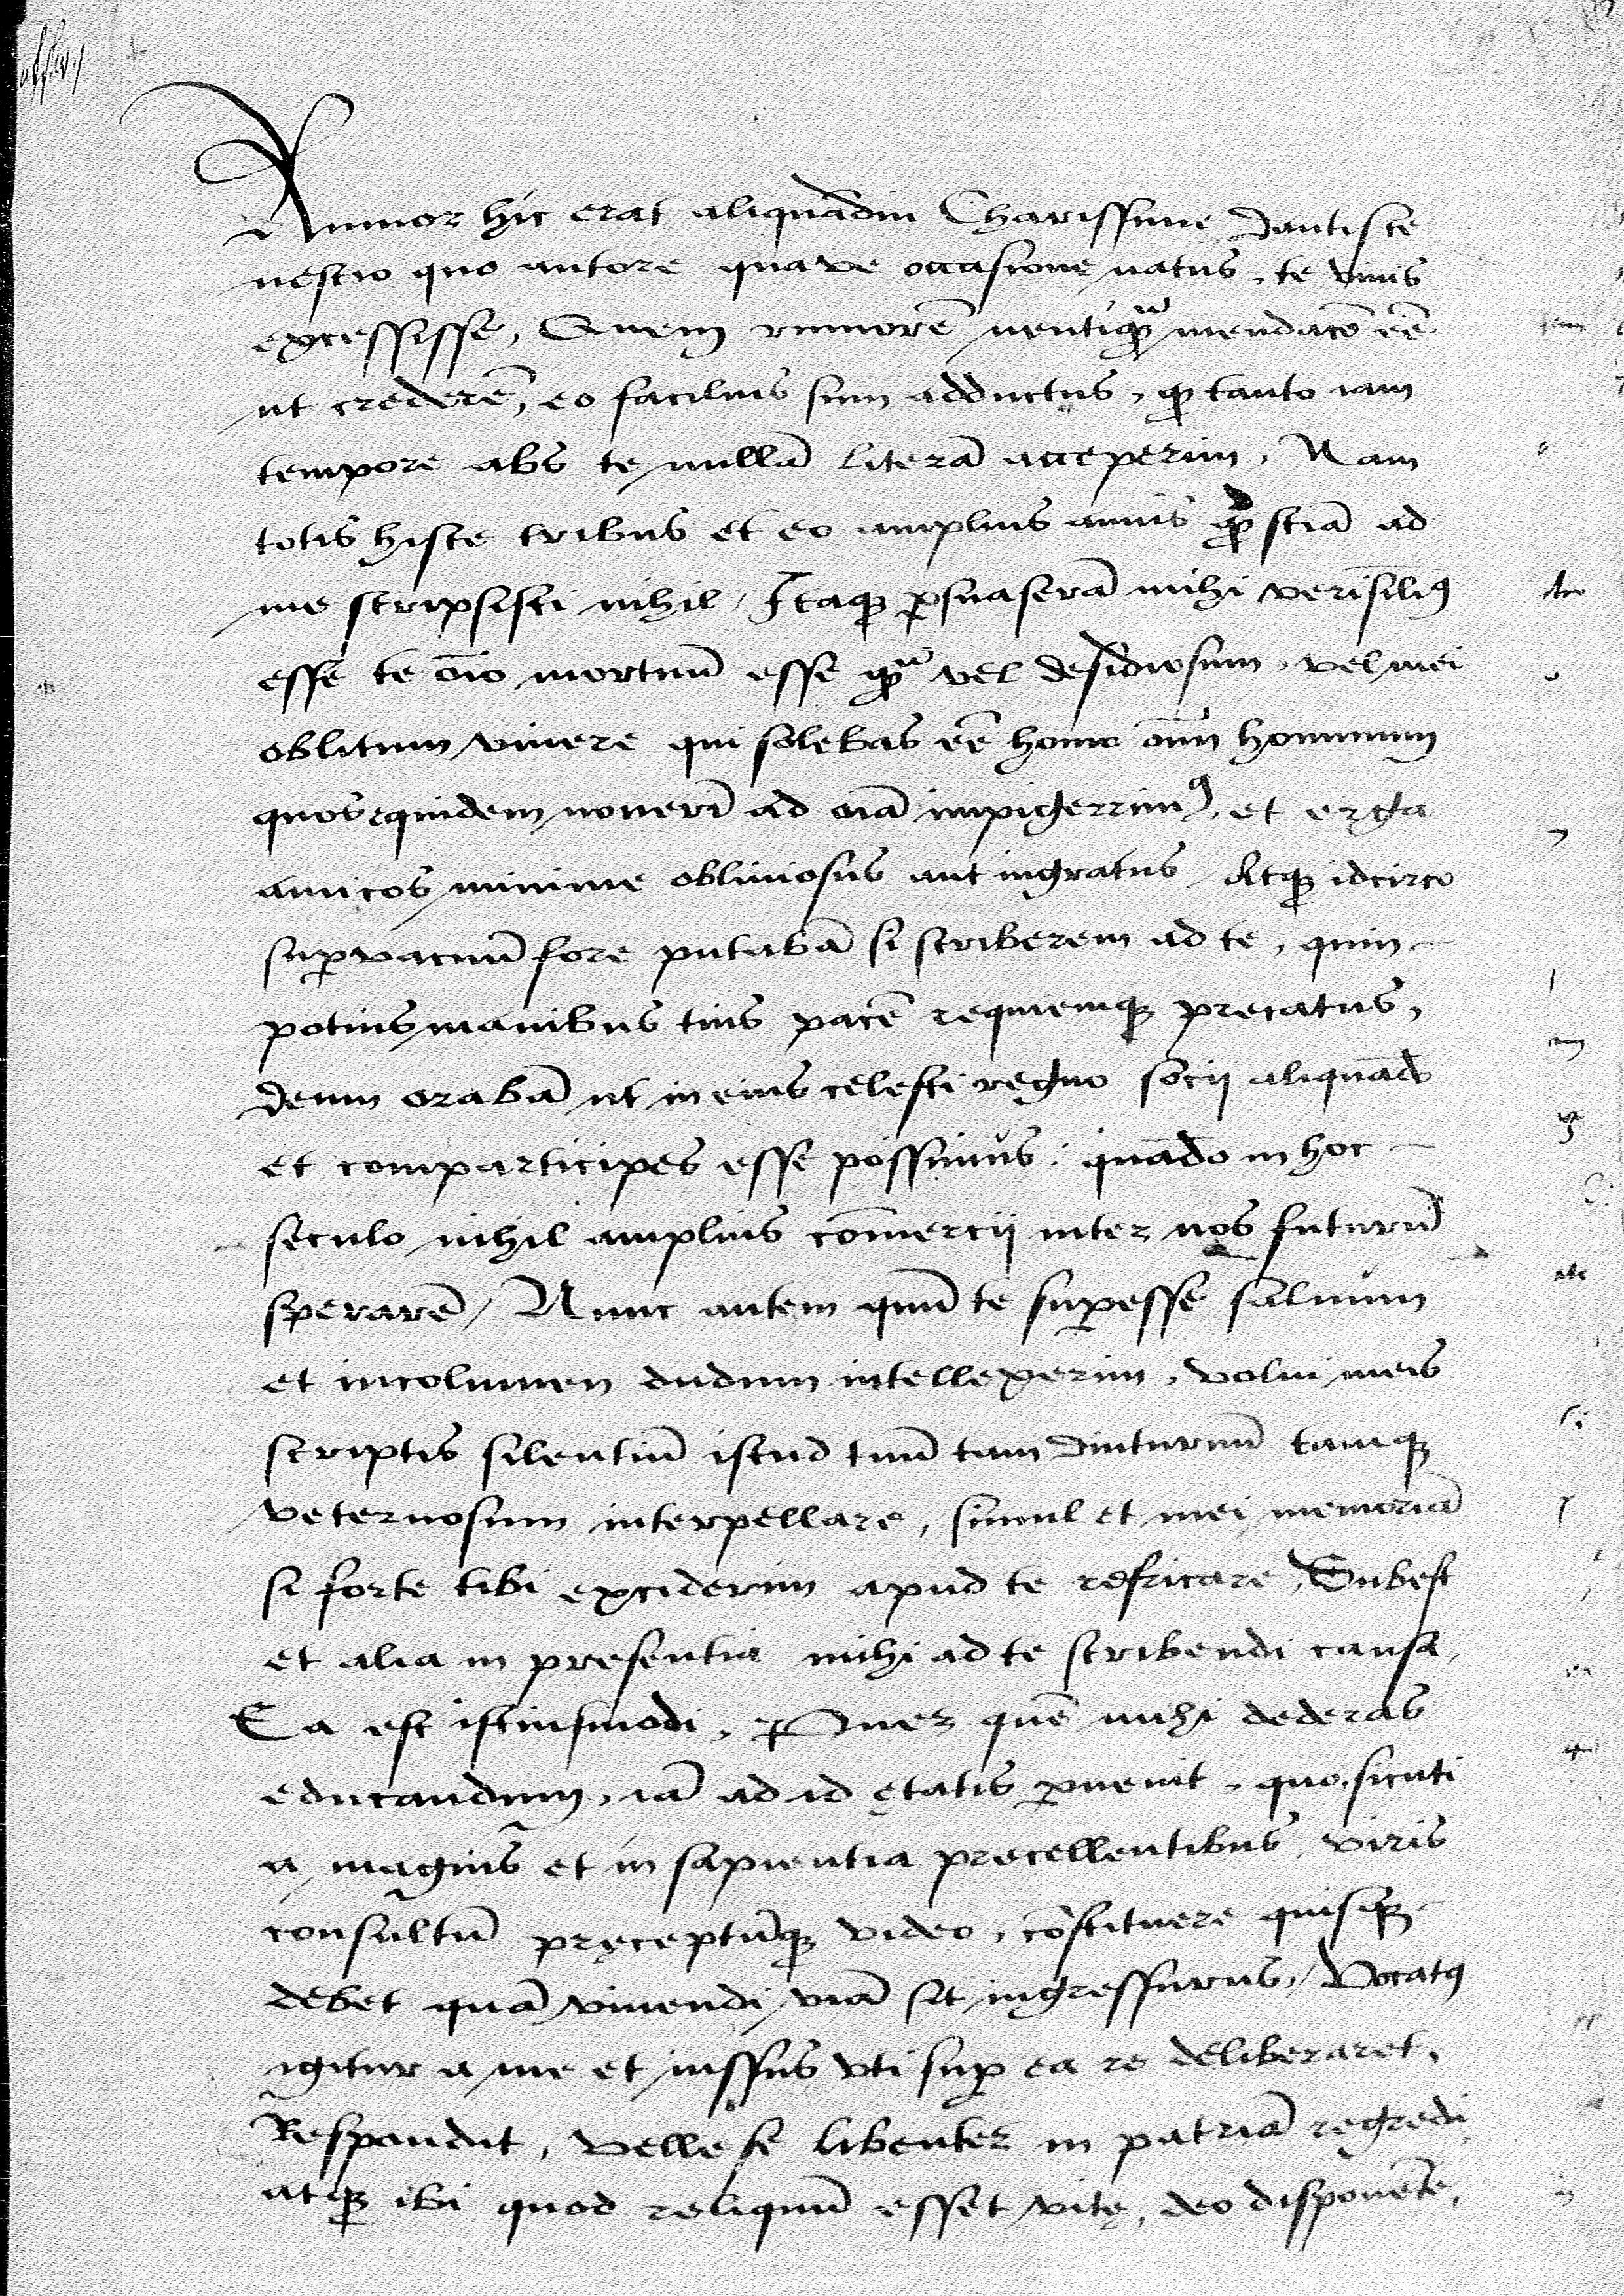 Rumor hic erat aliquādiu Charissime Dantisce
nescio quo autore quave occasione natus, te vivis
excessisse, Quem rumorē neutiqꝫ mendacē eē
ut crederē, eo facilius sum adductus, qꝫ tanto iam
tempore abs te nullā literā acceperim, Nam
totis hisce tribus et eo amplius annis qd sciā ad
me scripsisti nihil, Itaqꝫ ꝑsuaserā mihi verisiliꝰ
esse te oīo mortuū esse qꝫ vel desidiosum, vel mei
oblitum vivere qui solebas eē homo oīm hominum
quos equidem noverī ad oīa impigerrimꝰ, et erga
amicos minime obliviosus aut ingratus, Atqꝫ idcirco
suꝑvacuū fore putabā si scriberem ad te, quin
potius manibus tuis pacē requiemqꝫ precatus,
deum orabā ut in eius celesti regno socii aliquādo
et comparticipes esse possimus: quādo in hoc
seculo nihil amplius cōmercii inter nos futurū
sperarē, Nunc autem quū te suꝑesse salvum
et incolumen dudum intellexerim, volui meis
scriptis silentiū istud tuū tam diuturnū tamqꝫ
veternosum interpellare, simul et mei memoriā
si forte tibi exciderim apud te refricare, Subest
et alia in presentia mihi ad te scribendi causa,
Ea est istiusmodi, Puer quē mihi dederas
educandum, iā ad id ętatis ꝑvenit, quo sicuti
a magnis et in sapientia precellentibus viris
consultū pręceptūqꝫ video, cōstituere quisqꝫ
debet quā vivendi viā sit ingressurus, Vocatꝰ
igitur a me et iussus uti suꝑ ea re deliberaret,
Respondit, velle se libenter in patriā regredi
atqꝫ ibi quod reliquū esset vitę, deo disponēte,